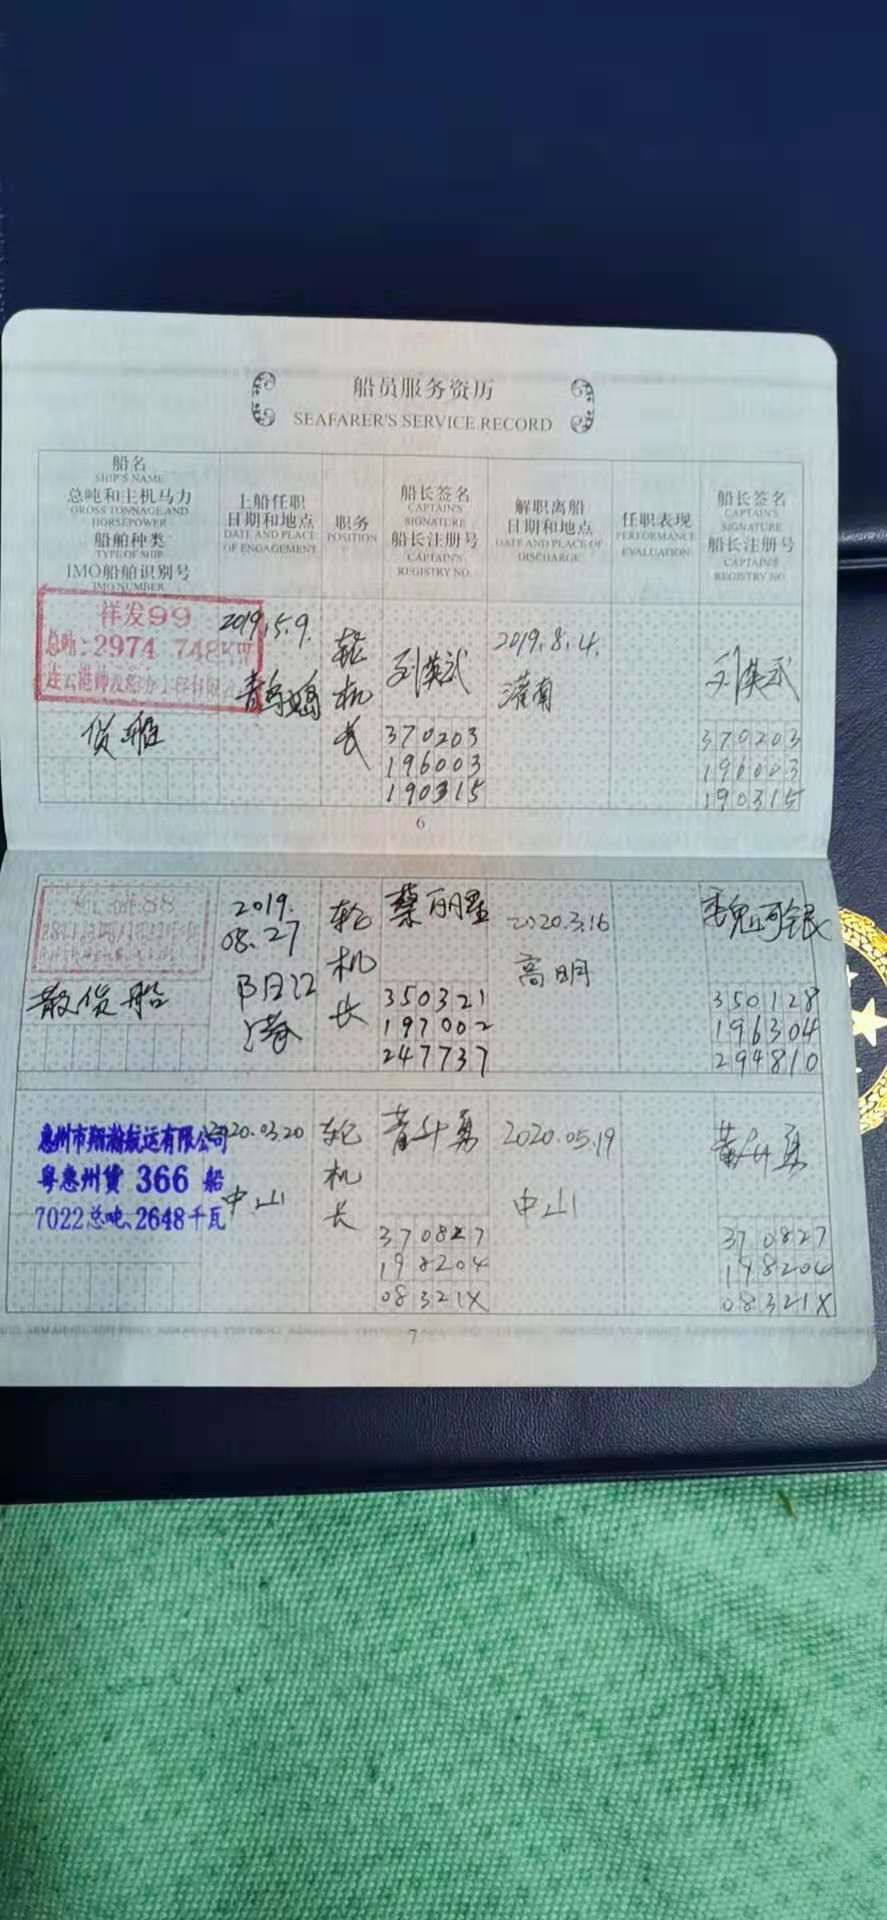 船员服务资历
SEAFARER'S SERVICE RECORD
船名
SHIP'S NAME
总吨和主机马力
GROSS TONNAGE AND
HORSEPOWER
船舶种类
TYPE OF SHIP
IMO船舶识别号
IMO NUMBER
上船任职
日期和地点
DATE AND PLACE
OF ENGAGEMENT
职务
POSITION
船长签名
CAPTAIN'S
SIGNATURE
船长注册号
CAPTAIN'S
REGISTRY NO.
解职离船
日期和地点
DATE AND PLACE OF
DISCHARGE
任职表现
PERFORMANCE
EVALUATION
船长签名
CAPTAIN'S
SIGNATURE
船长注册号
CAPTAIN'S
REGISTRY NO.
祥发99
总吨:2974 748KW
货船
2019.5.9.
轮机长
刘英武
370203
196003
190315
2019.8.4.
灌南
刘英武
370203
196003
190315
6
88
散货船
2019.
08.27
阳江
港
轮机长
蔡丽星
350321
197002
247737
2020.3.16
高明
魏可银
350128
196304
294810
惠州市翔瀚航运有限公司
粤惠州货 366 船
7022总吨、2648千瓦
2020.03.20
中山
轮机长
370827
198204
08321X
2020.05.19
中山
370827
198204
08321X
7